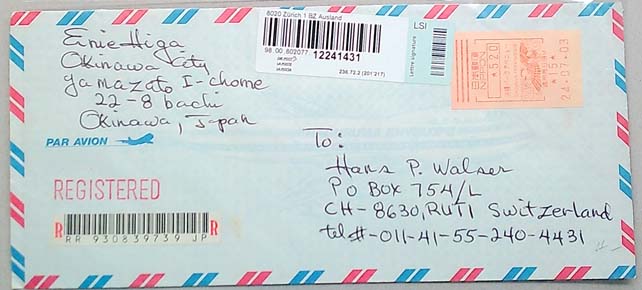 Ernie Higa
Okinawa City
yamazato 1-chome
22-8 bachi
Okinawa, Japan
PAR AVION
REGISTERED
R R
RR 930839739 JP
8020 Zürich 1 BZ Ausland
98.00.602077 12241431
236.72.2 (201'217)
LSI
Lettre signature
日本郵便
NIPPON
To:
Hans P. Walser
PO BOX 754/L
CH-8630, RUTI Switzerland
tel#-011-41-55-240-4431